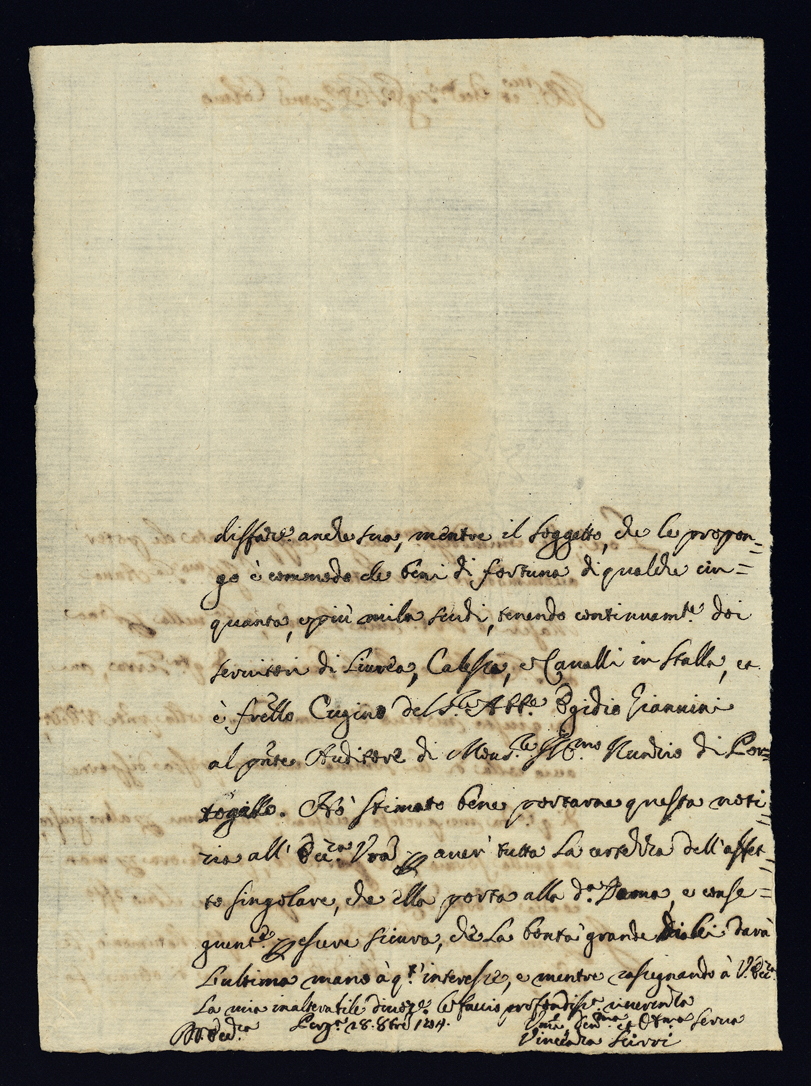 disfare. anche sua, mentre il soggetto, che le propon=
go è commodo de beni di fortuna di qualche cin=
quanta, e più mila scudi, tenendo continuamte. doi
servitori di Livrea, Calesse, e Cavalli in stalla, et
è frello Cugino del Sre. Abbe. Egidio Giannini
al pnte Auditore di Monsre. Illmo Nunzio di Por=
togallo. Hò stimato bene portarne questa noti=
zia all' Eccza Vra per aver' tutta la certezza dell'affet=
to singolare, che ella porta alla da. Dama, e conse=
guente. per essere sicura, che la bontà grande di lei darà
l'ultima mano à qto. interesse, e mentre rasignando à V. Ecca.
La mia inalterabile divoze. le faccio profondisse. riverenza
D. V. Ecca Perga. 28. 8bre 1704.
Uma, Devma et Obma Serva
Vincenza